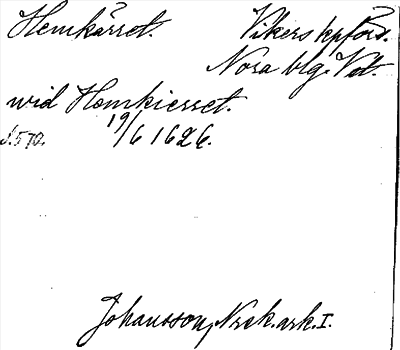 Hemkärret. Vikers kpförs.
Nora blg. Vstm.
wid Hemkierret.
s. 570. 19/6 1626.
Johansson, Norsk. ark. I.